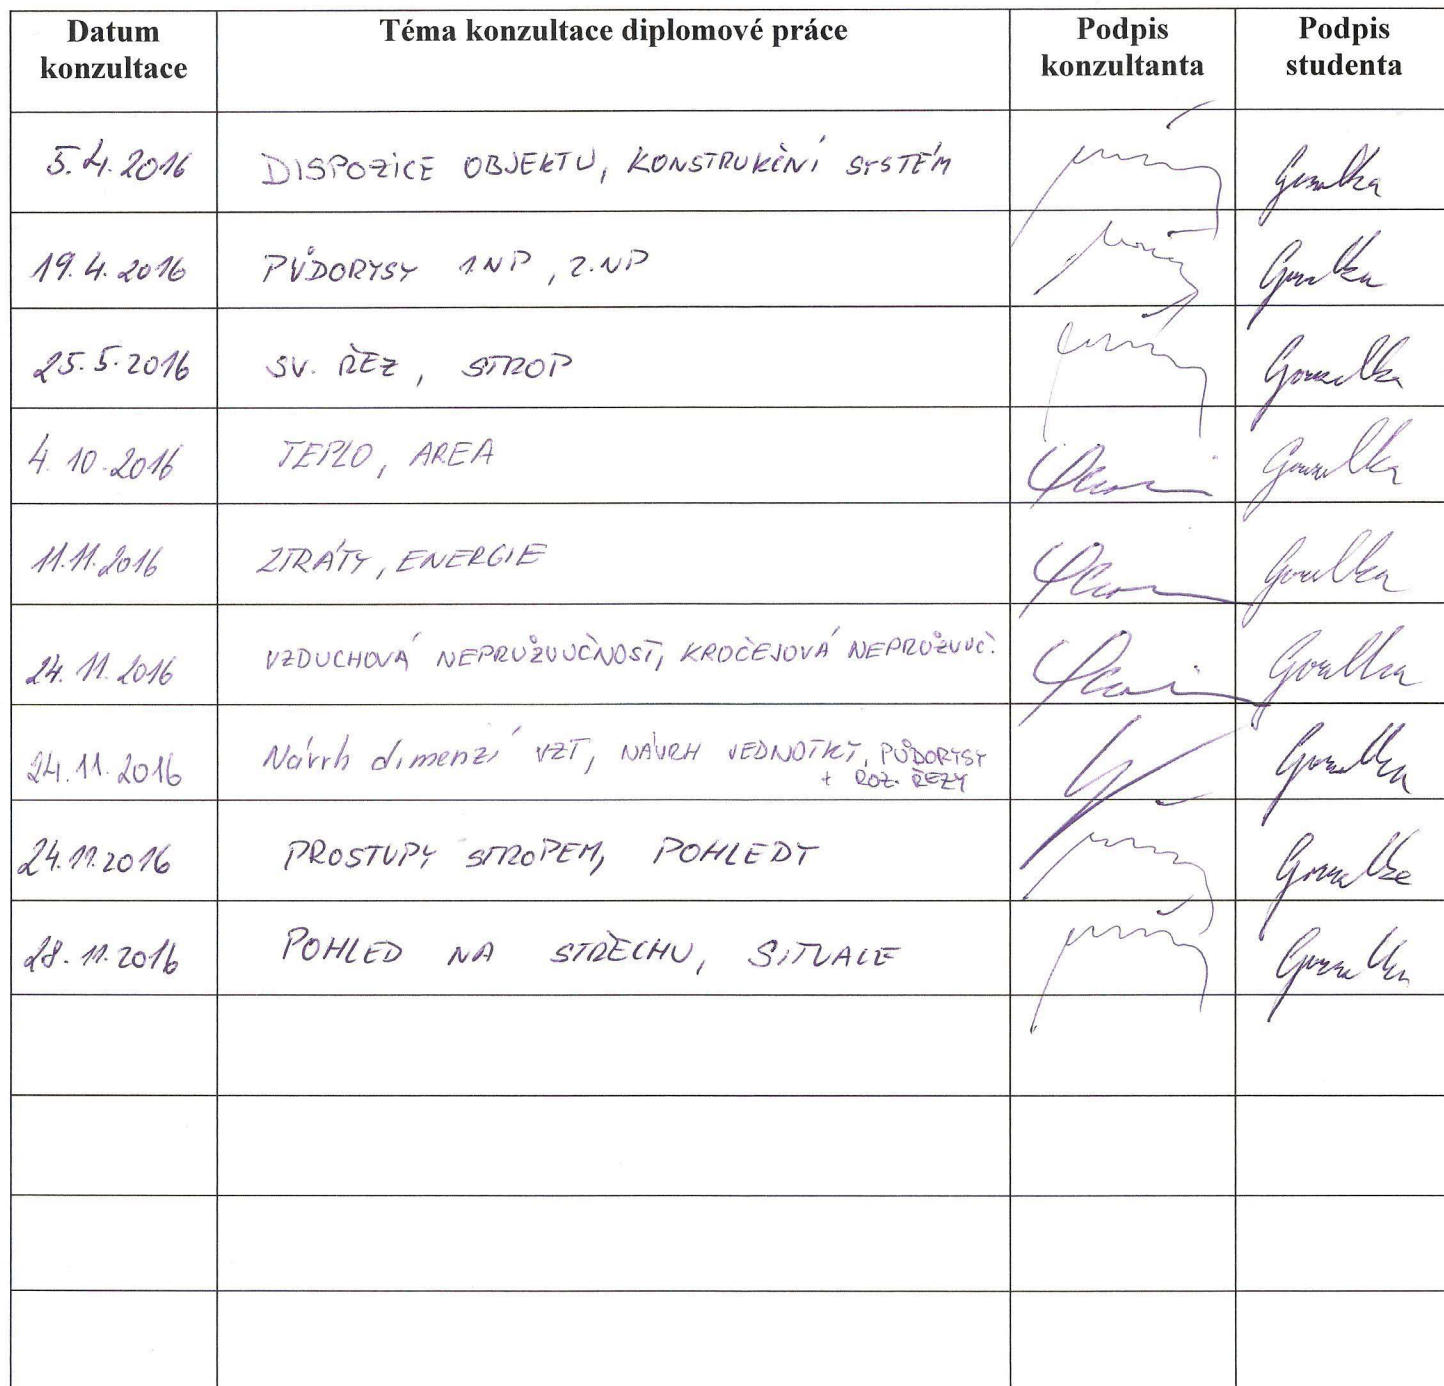 Datum konzultace
Téma konzultace diplomové práce
Podpis konzultanta
Podpis studenta
5.4.2016 DISPOZICE OBJEKTU, KONSTRUKČNÍ SYSTÉM
19.4.2016 PŮDORYSY 1.NP, 2.NP
25.5.2016 SV. ŘEZ, STROP
4.10.2016 TEPLO, AREA
11.11.2016 ZTRÁTY, ENERGIE
24.11.2016 VZDUCHOVÁ NEPRŮZVUČNOST, KROČEJOVÁ NEPRŮZVUČ.
24.11.2016 Návrh dimenzí VZT, NÁVRH JEDNOTKY, PŮDORYSY
+ ROZ. ŘEZY
24.11.2016 PROSTUPY STROPEM, POHLEDY
28.11.2016 POHLED NA STŘECHU, SITUACE